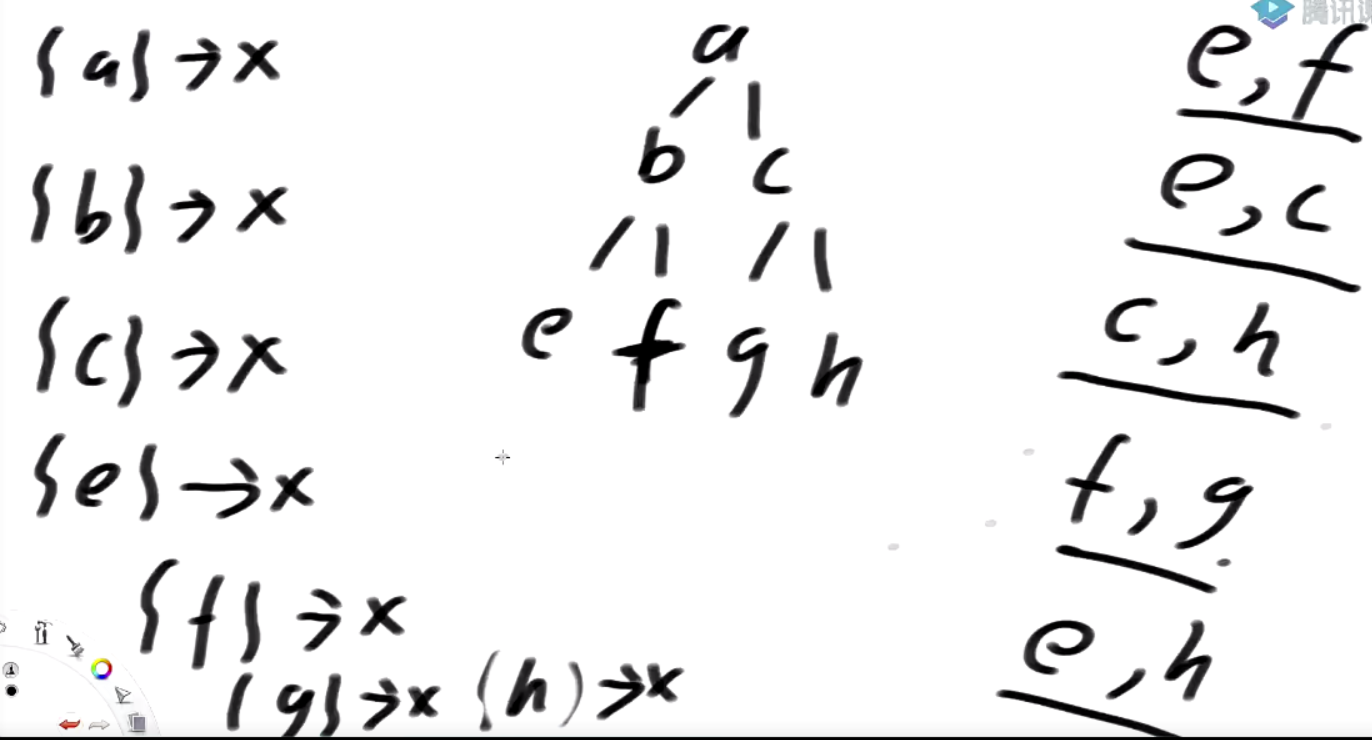 {a} → x
{b} → x
{c} → x
{e} → x
{f} → x
{g} → x (h) → x
a
b c
e f g h
e, f
e, c
c, h
f, g
e, h
腾讯